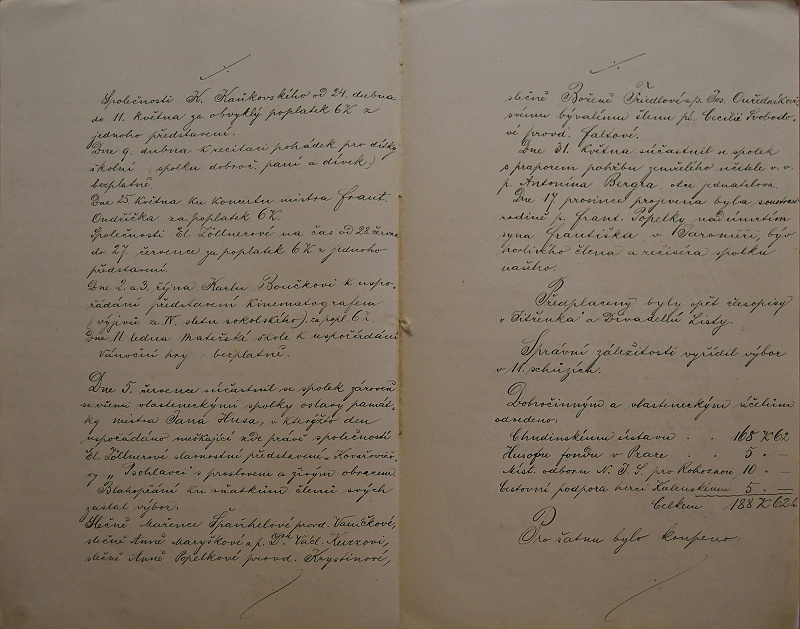 Společnosti K. Kaňkovského od 24. dubna
do 11. května za obvyklý poplatek 6K z
jednoho představení.
Dne 9. dubna k recitaci pohádek pro dítky
školní (spolku dobroč. paní a dívek)
bezplatně.
Dne 25. května ku koncertu mistra Frant.
Ondříčka za poplatek 6K.
Společnosti El. Zöllnerové na čas od 28. června
do 27. července za poplatek 6K z jednoho
představení.
Dne 2. a 3. října Karlu Boučkovi k uspo-
řádání představení kinematografem
(výjevů z IV. sletu sokolského) za popl. 6K.
Dne 11. ledna Mateřské škole k uspořádání
Vánoční hry bezplatně.
Dne 5. července súčastnil se spolek zároveň
se všemi vlasteneckými spolky oslavy památ-
ky mistra Jana Husa, v kterýžto den
uspořádáno meškající zde právě společností
El. Zöllnerové slavnostní představení „Kovařovic-
ovy „Psohlavci" s proslovem a živým obrazem.
Blahopřání ku sňatkům členů svých
zaslal výbor:
Slečně Mařence Španhelové provd. Vaníčkové,
slečně Anně Maryškové a p. Dru Václ. Kurzovi,
slečně Anně Popelkové provd. Krystinové,
slečně Boženě Friedlové a p. Jos. Ouředníkovi,
svému bývalému členu pí. Cecilii Svobodo-
vé provd. Faltové.
Dne 31. května súčastnil se spolek
s praporem pohřbu zemřelého učitele v. v.
p. Antonína Bergra, otce jednatelova.
Dne 17. prosince projevena byla soustrast
rodině p. Frant. Popelky nad úmrtím
syna Františka v Jaroměři, býv.
horlivého člena a režiséra spolku
našeho.
Předplaceny byly opět časopisy
„Jitřenka" a Divadelní Listy.
Správní záležitosti vyřídil výbor
v 11. schůzích.
Dobročinným a vlasteneckým účelům
odvedeno:
Chudinskému ústavu . . 168 K 62
Husovu fondu v Praze . . 5 " —
Míst. odboru N. J. S. pro Rohoznou 10 " —
Cestovní podpora herci Kalenskému 5 " —
Celkem 188 K 62 h
Pro šatnu bylo koupeno: